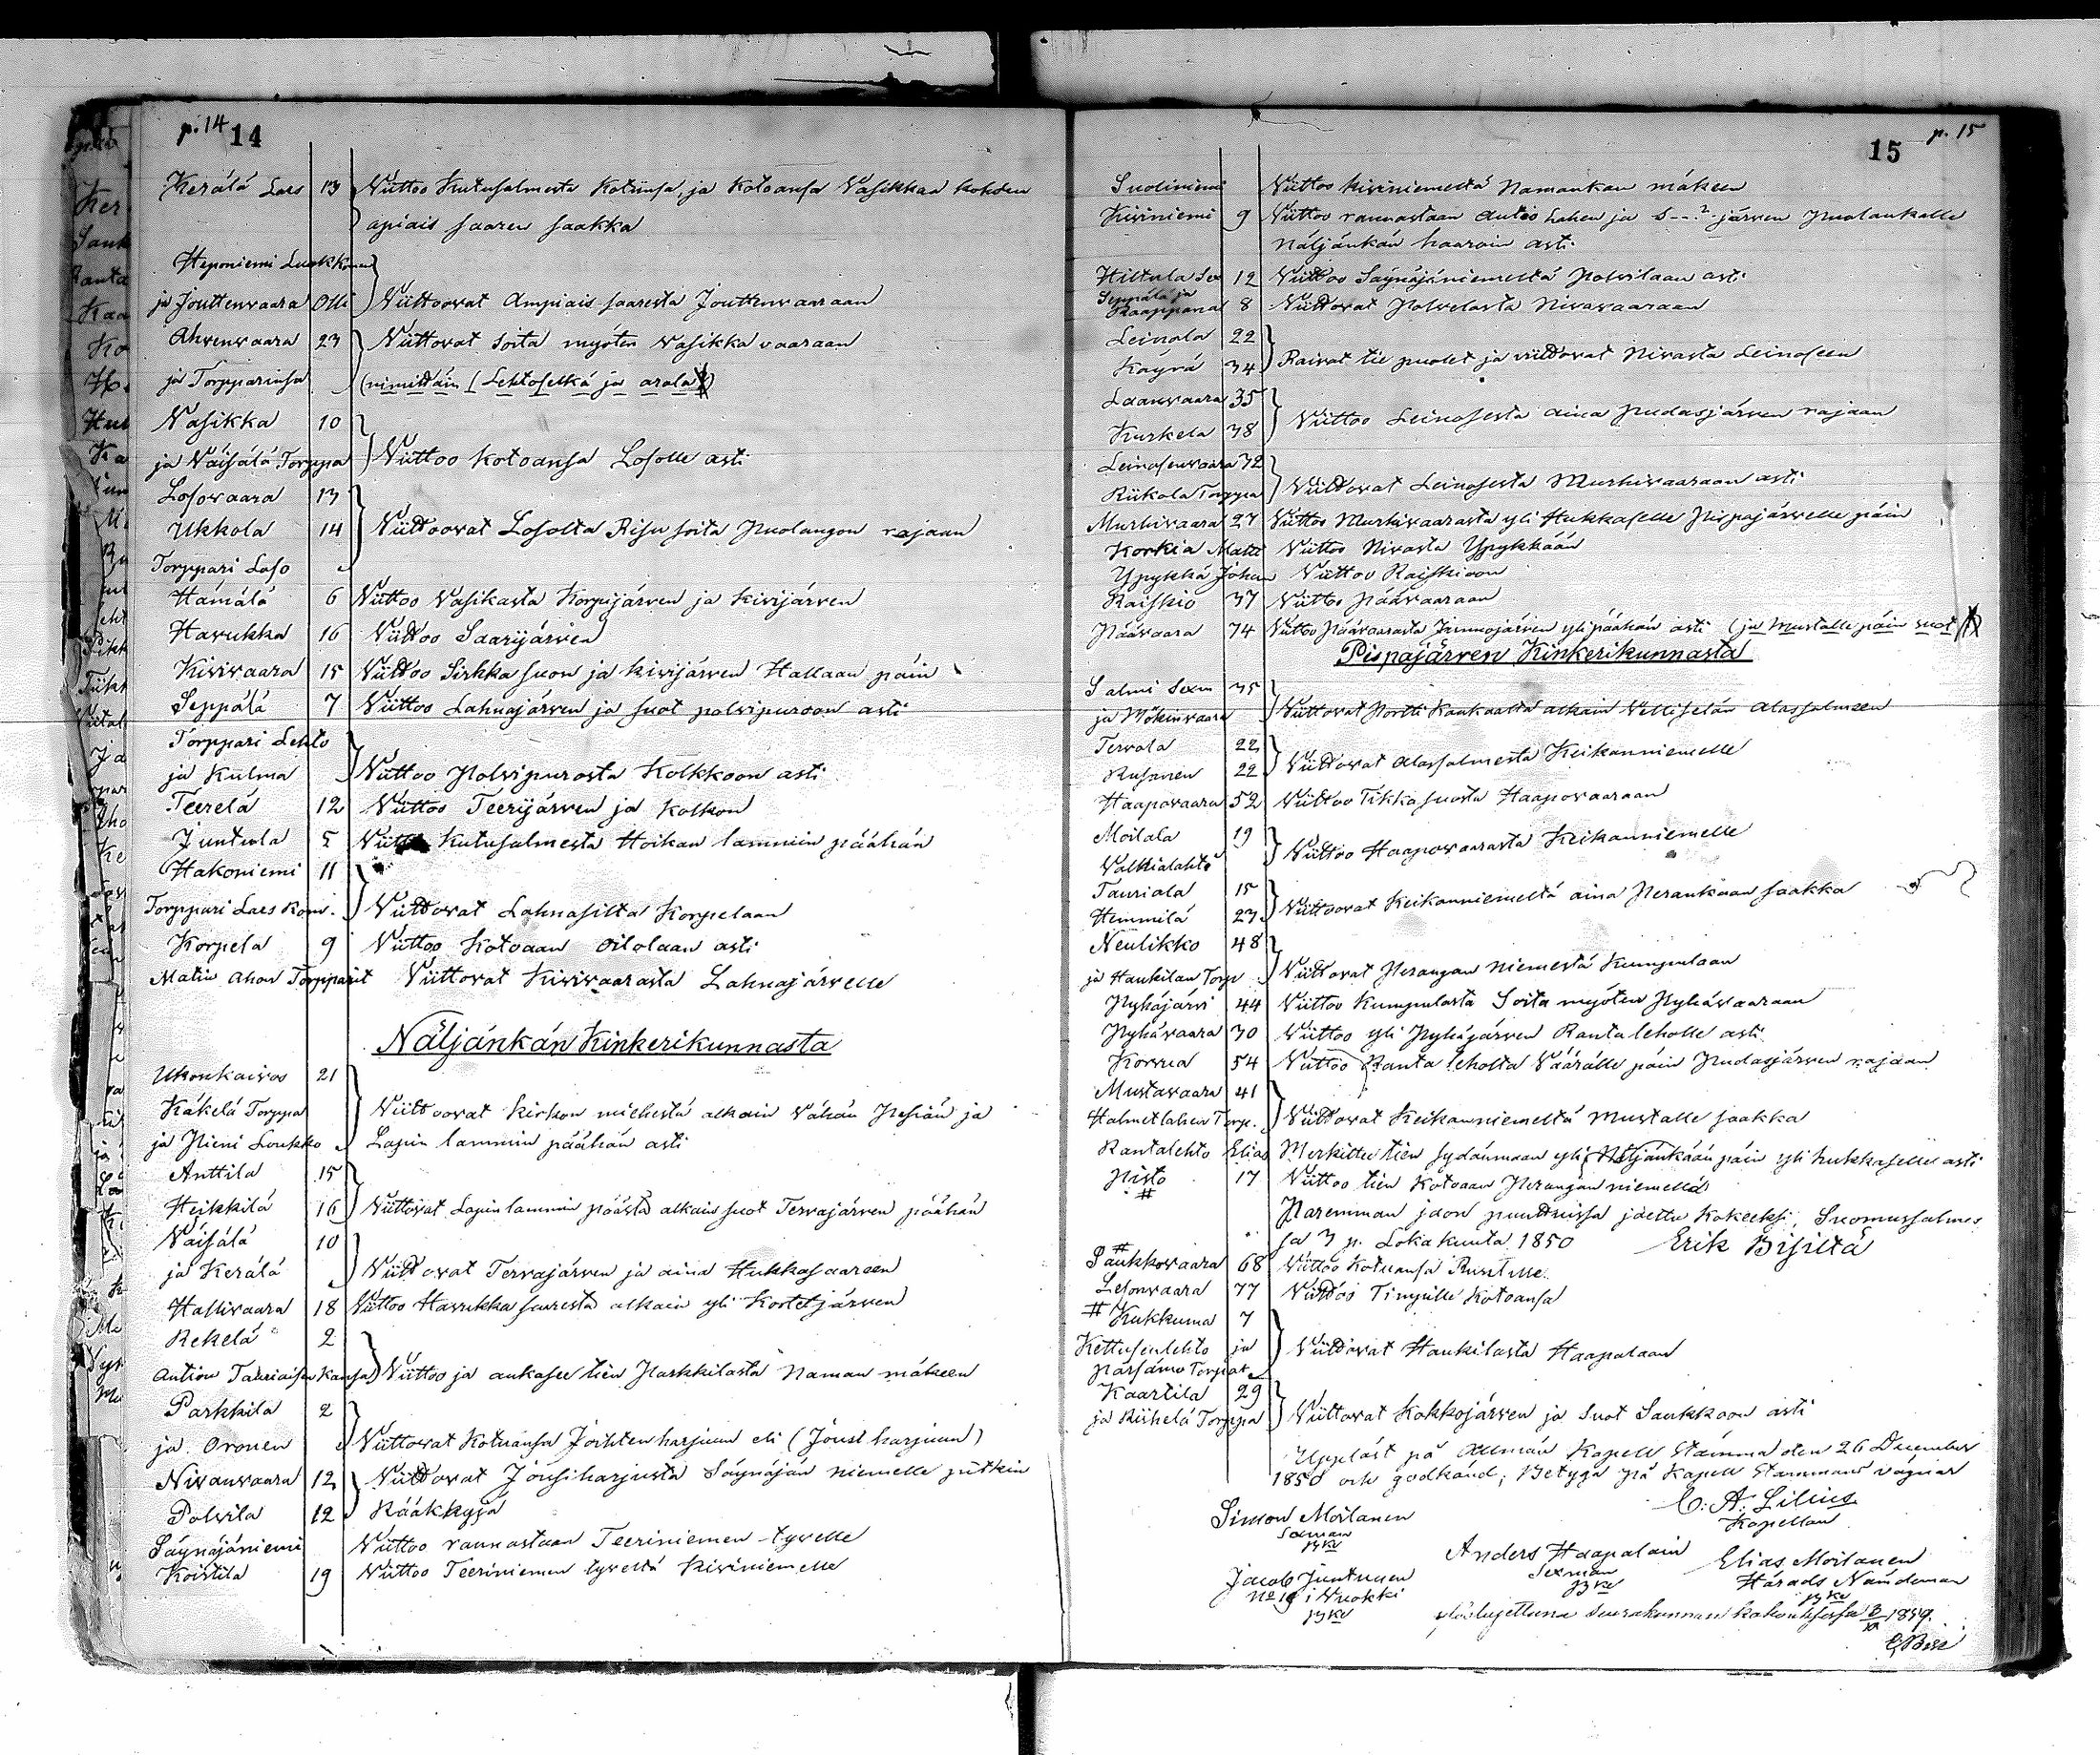 p. 14 14
Kerälä Lars 13 Viittoo Kutusalmesta Kotiinsa, ja kotoansa Vasikkaa kohden
apiais saaren saakka
Heponiemi Luokkonen
ja Jouttenvaara Olli Viittoovat Ampiais saaresta Jouttenvaaraan
Ahvenvaara 23 Viittovat soita myöten Vasikka vaaraan
ja Torpparinsa (nimittäin / Lehtoselkä ja arala)
Vasikka 10
ja Väisälä Torppa Viittoo kotoansa Losolle asti
Losovaara 13
Ukkola 14 Viittoovat Losolta Risu soita Puolangon rajaan
Torppari Laso
Hämälä 6 Viittoo Vasikasta Korpijärven ja kivijärven
Havukka 16 Viittoo Saarijärven
Kivivaara 15 Viittoo Sirkka suon ja kivijärven Hallaan päin
Seppälä 7 Viittoo Lahnajärven ja suot polvipuroon asti
Torppari Lehto
ja Kulma Viittoo Polvipurosta Kolkkoon asti
Teerelä 12 Viittoo Teerijärven ja Kolkon
Juntula 5 Kutusalmesta Hoikan lammin päähän
Hakoniemi 11
Torppari Lars Kom. Viittovat Lahnasilta Korpelaan
Korpela 9 Viittoo Kotoaan Oilolaan asti
Matin Ahon Torpparit Viittovat Kivivaarasta Lahnajärvelle
Näljänkän Kinkerikunnasta
Ukonkaivos 21
Käkelä Torppa Viittoovat kirkon miehestä alkain Vähän Pesiän ja
ja Pieni Loukko Lapin lammin päähän asti
Anttila 15
Heikkilä 16 Viittovat Lapin lammin päästä alkain suot Tervajärven päähän
Väisälä 10
ja Kerälä Viittovat Tervajärven ja aina Hukkasaareen
Hallivaara 18 Viittoo Havukka suresta alkain yli Kostetjärven
Rekelä 2
Antion Tauriaisen Kansa Viittoo ja aukasee tien Parkkilasta Naman mäkeen
Parkkila 2
ja Oronen Viittovat Kotuansa Joihtenharjuun eli (Jousi harjuun)
Nivanvaara 12 Viittovat Jousiharjusta Säynäjän niemelle pitkin
Polvila 12 Rääkkyjä
Säynäjäniemi Viittoo rannastaan Teeriniemen tyvelle
Koistila 19 Viittoo Teeriniemen tyveltä Kiviniemelle
15 p. 15
Suoliniemi Viittoo kiviniemestä Namankan mäkeen
Kiviniemi 9 Viittoo rannastaan autio Lahen ja S--?-järven Puolankalle
Näljänkän haarain asti
Hiltula Sex 12 Viittoo Säynäjäniemeltä Polvilaan asti
Seppälä ja
Kaappana 8 Viittovat Polvelasta Nivavaaraan
Leinola 22
Käyrä 34 Raivat tie puolet ja viittovat Nivasta Leinoseen
Laanvaara 35
Kurkela 38 Viittoo Leinosesta aina Pudasjärven rajaan
Leinosenvaara 32
Riikola Torppa Viittovat Leinosesta Murhivaaraan asti
Murhivaara 27 Viittoo Murhivaarasta yli Hukkaselle Pispajärvelle päin
Korkia Matti Viittoo Nivasta Ypykkään
Ypykkä Johan Viittoo Raiskioon
Raiskio 37 Viittoo Päävaaraan
Päävaara 74 Viittoo Päävaarasta Jumnojärven yli päähän asti (ja Mustalle päin suot)
Pispajärven Kinkerikunnasta
Salmi Sexm 35
ja Mökinvaara Viittovat Portti Kankaalta alkain Vellisetän Alassalmeen
Tervola 22
Rusanen 22 Viittovat Alassalmesta Keikanniemelle
Haapovaara 52 Viittoo Tikka suosta Haapovaaraan
Moilala 19
Valkialahti Viittoo Haapovaarasta Keikanniemelle
Tauriala 15
Hemmilä 23 Viittoovat Keikanniemeltä aina Perankaan saakka
Neulikko 48
ja Haukilan Torp Viittovat Perangan niemestä Kumpulaan
Pyhäjärvi 44 Viittoo Kumpulasta Soita myöten Pyhävaaraan
Pyhävaara 30 Viittoo yli Pyhäjärven Ranta leholle asti
Korvua 54 Viittoo Ranta leholta Väärälle päin Pudasjärven rajaan
Mustavaara 41
Halmetlahen Torp. Viittovat Keikanniemeltä Mustalle saakka
Rantalehto Elias Merkittee tien sydänmaan yli Näljänkään päin yli hukkaselle asti
Pisto 17 Viittoo tien Kotoaan Perangan niemellä
# Paremman jaon puuttuissa jaettu kokeeksi, Suomussalmes
sa 3 p. Lokakuuta 1850 Erik Bisiltä
# Saukkovaara 68 Viittoo Kotuansa
Lesonvaara 77 Viittoo Kotoansa
# Kukkuma 7
Kettusenlehto ja Viittovat Haukilasta Haapalaan
Pärsämö Torpat
Kaartila 29
ja Riihelä Torppa Viittovat Kokkojärven ja suot Saukkoon asti
Uppläst på Allmän Kapell Stämma den 26 December
1850 och godkänd; Betyga på Kapell Stämmans vägnar
C. A. Lilius
Kapellan
Simon Moilanen
Sexman
Anders Haapalain
Sexman
Elias Moilanen
Härads Nämdeman
Jacob Juntunen
No 19 i Vuokki
ylösluettuna seurakunnan kokouksessa 1859.